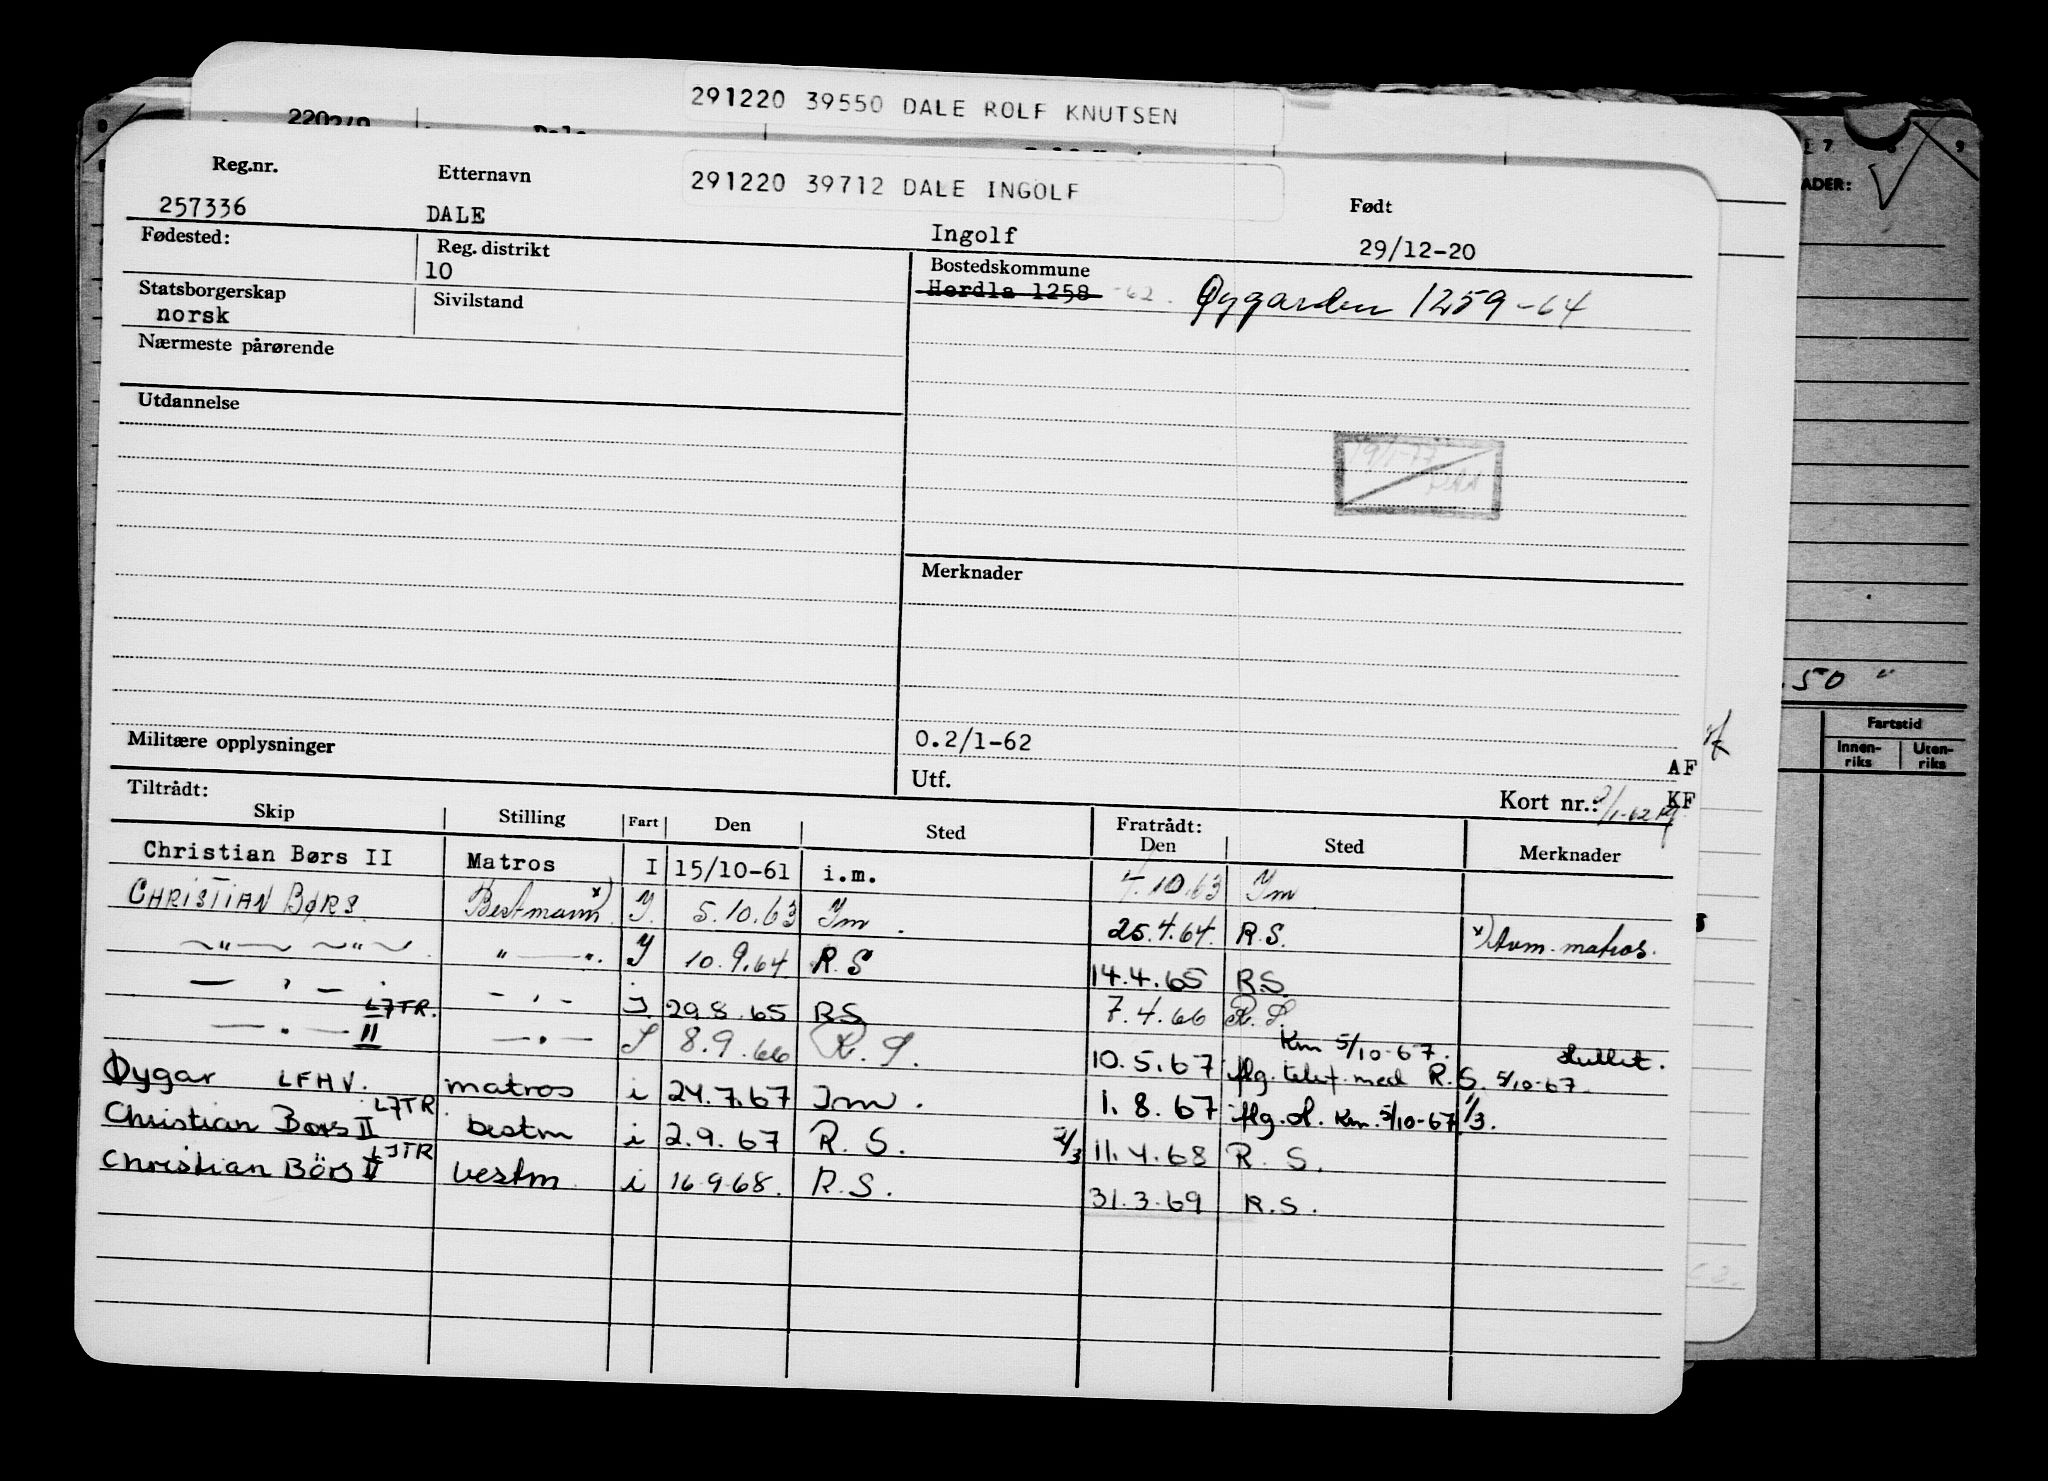 291220 39550 DALE ROLF KNUTSEN
291220 39712 DALE INGOLF
Reg.nr. Etternavn Født
257336 DALE Ingolf 29/12-20
Fødested: Reg. distrikt Bostedskommune
10 Herdla 1258 -62. Øygarden 1259-64
Statsborgerskap Sivilstand
norsk
Nærmeste pårørende
Utdannelse
Merknader
Militære opplysninger 0.2/1-62
AF
Utf. Kort nr.: KF
Tiltrådt: Fratrådt:
Skip Stilling Fart Den Sted Den Sted Merknader
Christian Børs II Matros I 15/10-61 i.m. 4.10.63 Im.
CHRISTIAN BØRS. Bestmann x) I. 5.10.63 Im. 25.4.64. R.S. x) Avm. matros.
—"— —"— . "—". I 10.9.64 R.S 14.4.65 R.S.
— " — - " - I 29.8.65 R.S 7.4.66 R.S.
LJTR.
— " — II — " — I 8.9.66 R.S. 10.5.67 iflg. telef. med R.S. 5/10-67.
Km 5/10-67. sluttet.
Øygar LFHV. matros i 24.7.67 Im. 1.8.67 iflg. d. Km. 5/10-67 1/3.
LJTR
Christian Børs II bestm i 2.9.67 R.S. 2/3 11.4.68 R.S.
LJTR
Christian Börs II bestm i 16.9.68. R.S. 31.3.69 R.S.
7 9
ADER:
.50 "
Fartstid
Innen-riks Uten-riks